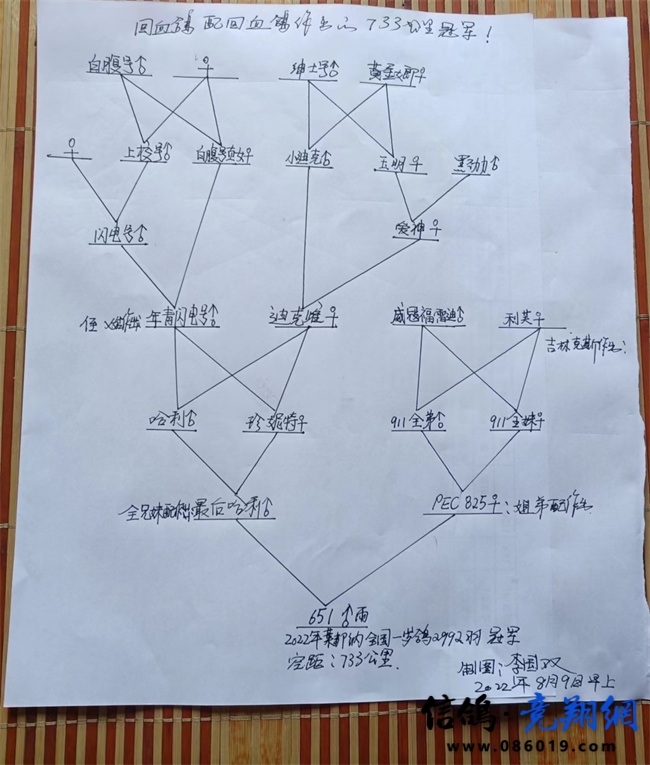 回血鸽配回血鸽作出的733公里冠军!
白腹号♂ ♀ 绅士号♂ 黄金女郎♀
♀ 上校号♂ 白腹号贞女♀ 小迪克♂ 五明♀ 黑力♂
闪电号♂ 爱神♀
年青闪电号♂ 迪克雌♀ 威恩福雷迪♂ 利芙♀
吉林克斯作出:
哈利♂ 珍妮特♀ 911全弟♂ 911全妹♀
全兄妹配作出最后哈利♂ PEC 825♀:姐弟配作出
651♂雨
2022年某部的全国一岁鸽2992羽冠军
空距:733公里.
制图:李国双
2022年8月9日早上
信鸽·竞翔網
www.086019.com